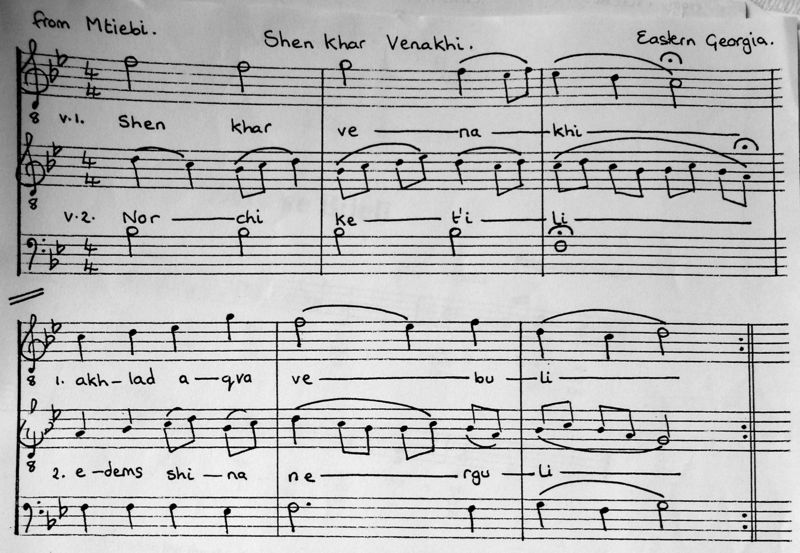 from Mtiebi.
Shen Khar Venakhi.
Eastern Georgia.
v.1. Shen khar ve — na — khi
v.2. Nor — chi ke — t'i — Li
1. akh-lad a-qva ve — bu — li
2. e-dems shi-na ne — rgu — Li